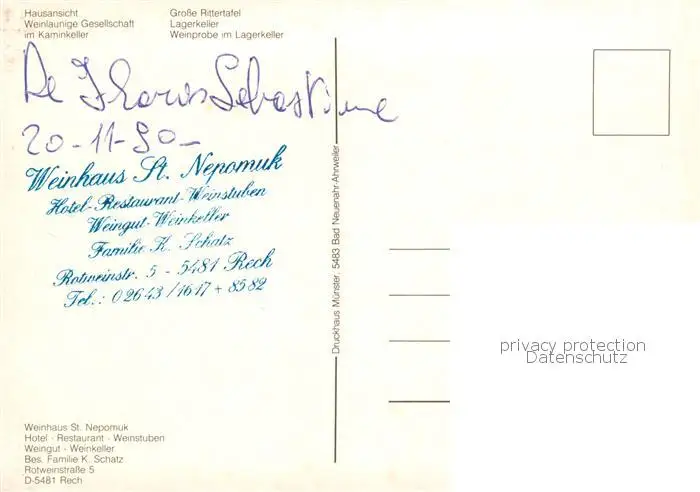 Hausansicht
Weinlaunige Gesellschaft
im Kaminkeller
Große Rittertafel
Lagerkeller
Weinprobe im Lagerkeller
De
20-11-90-
Weinhaus St. Nepomuk
Hotel-Restaurant-Weinstuben
Weingut-Weinkeller
Familie K. Schatz
Rotweinstr. 5 - 5481 Rech
Tel.: 02643/1617 + 8582
Druckhaus Münster, 5483 Bad Neuenahr-Ahrweiler
privacy protection
Datenschutz
Weinhaus St. Nepomuk
Hotel · Restaurant · Weinstuben
Weingut · Weinkeller
Bes. Familie K. Schatz
Rotweinstraße 5
D-5481 Rech